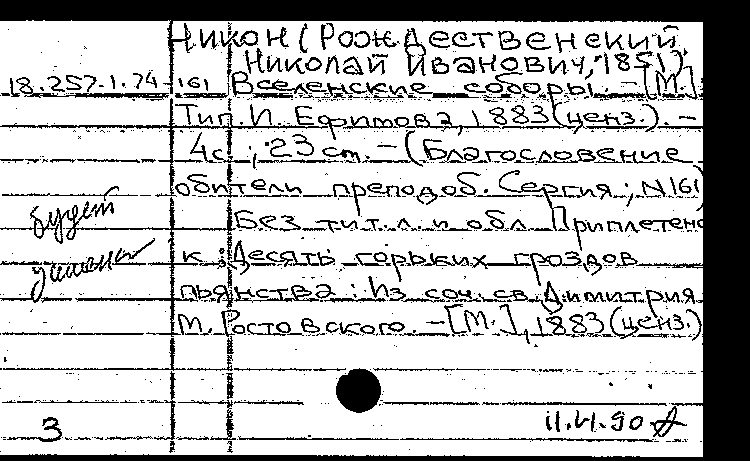 Никон (Рождественский,
Николай Иванович, 1851).
18.257.1.74-161 Вселенские соборы. - [М.]:
Тип. И. Ефимова, 1883 (ценз.). -
4с.; 23 см. - (Благословение
обители преподоб. Сергия; N161)
будет
Без тит. л. и обл. Приплетено
к: Десять горьких гроздов
пьянства: Из соч. св. Димитрия
М. Ростовского. - [М.], 1883 (ценз.)
3